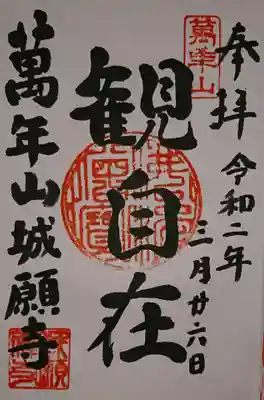 奉拝
令和二年
三月廿六日
観自在
萬年山城願寺
萬年山